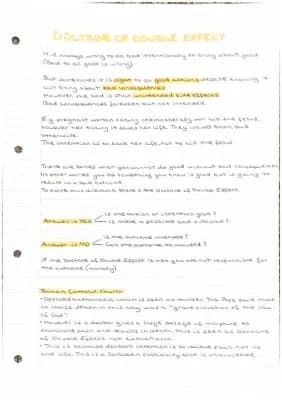 DOCTRINE OF DOUBLE EFFECT
It is always wrong to do bad intentionally to bring about good
(Bad to do good is wrong)
But sometimes it is right to do good actions despite knowing it
will bring about bad consequences
However the bad is only unintended side effects
Bad consequences foreseen but not intended.
E.g. pregnant woman eating chemotherapy can kill the fetus,
however her taking it saves her life. They would both die
otherwise.
The intention is to save her life, not to kill the fetus
There are times when you cannot do good without bad consequences
In other words you do something you know is good but is going to
result in a bad outcome
To solve this dilemma there's the Doctrine of Double Effect
Is the action or intention good?
Answer is YES
Is there a possible bad outcome?
Is the outcome intended?
Answer is NO
Can the outcome be avoided?
If the Doctrine of Double Effect is met you are not responsible for
the outcome (morally)
Roman Catholic Church
• Opposes euthanasia which is seen as murder. The Pope said that
to cause death in this way was a "grave violation of the law
of God"
• However if a doctor gives a large dosage of morphine to
eliminate pain and results in death, this is seen as Doctrine
of Double Effect not euthanasia.
• This is because doctor's intention is to relieve pain, not to
end life. This is a foreseen possibility but is unavoidable